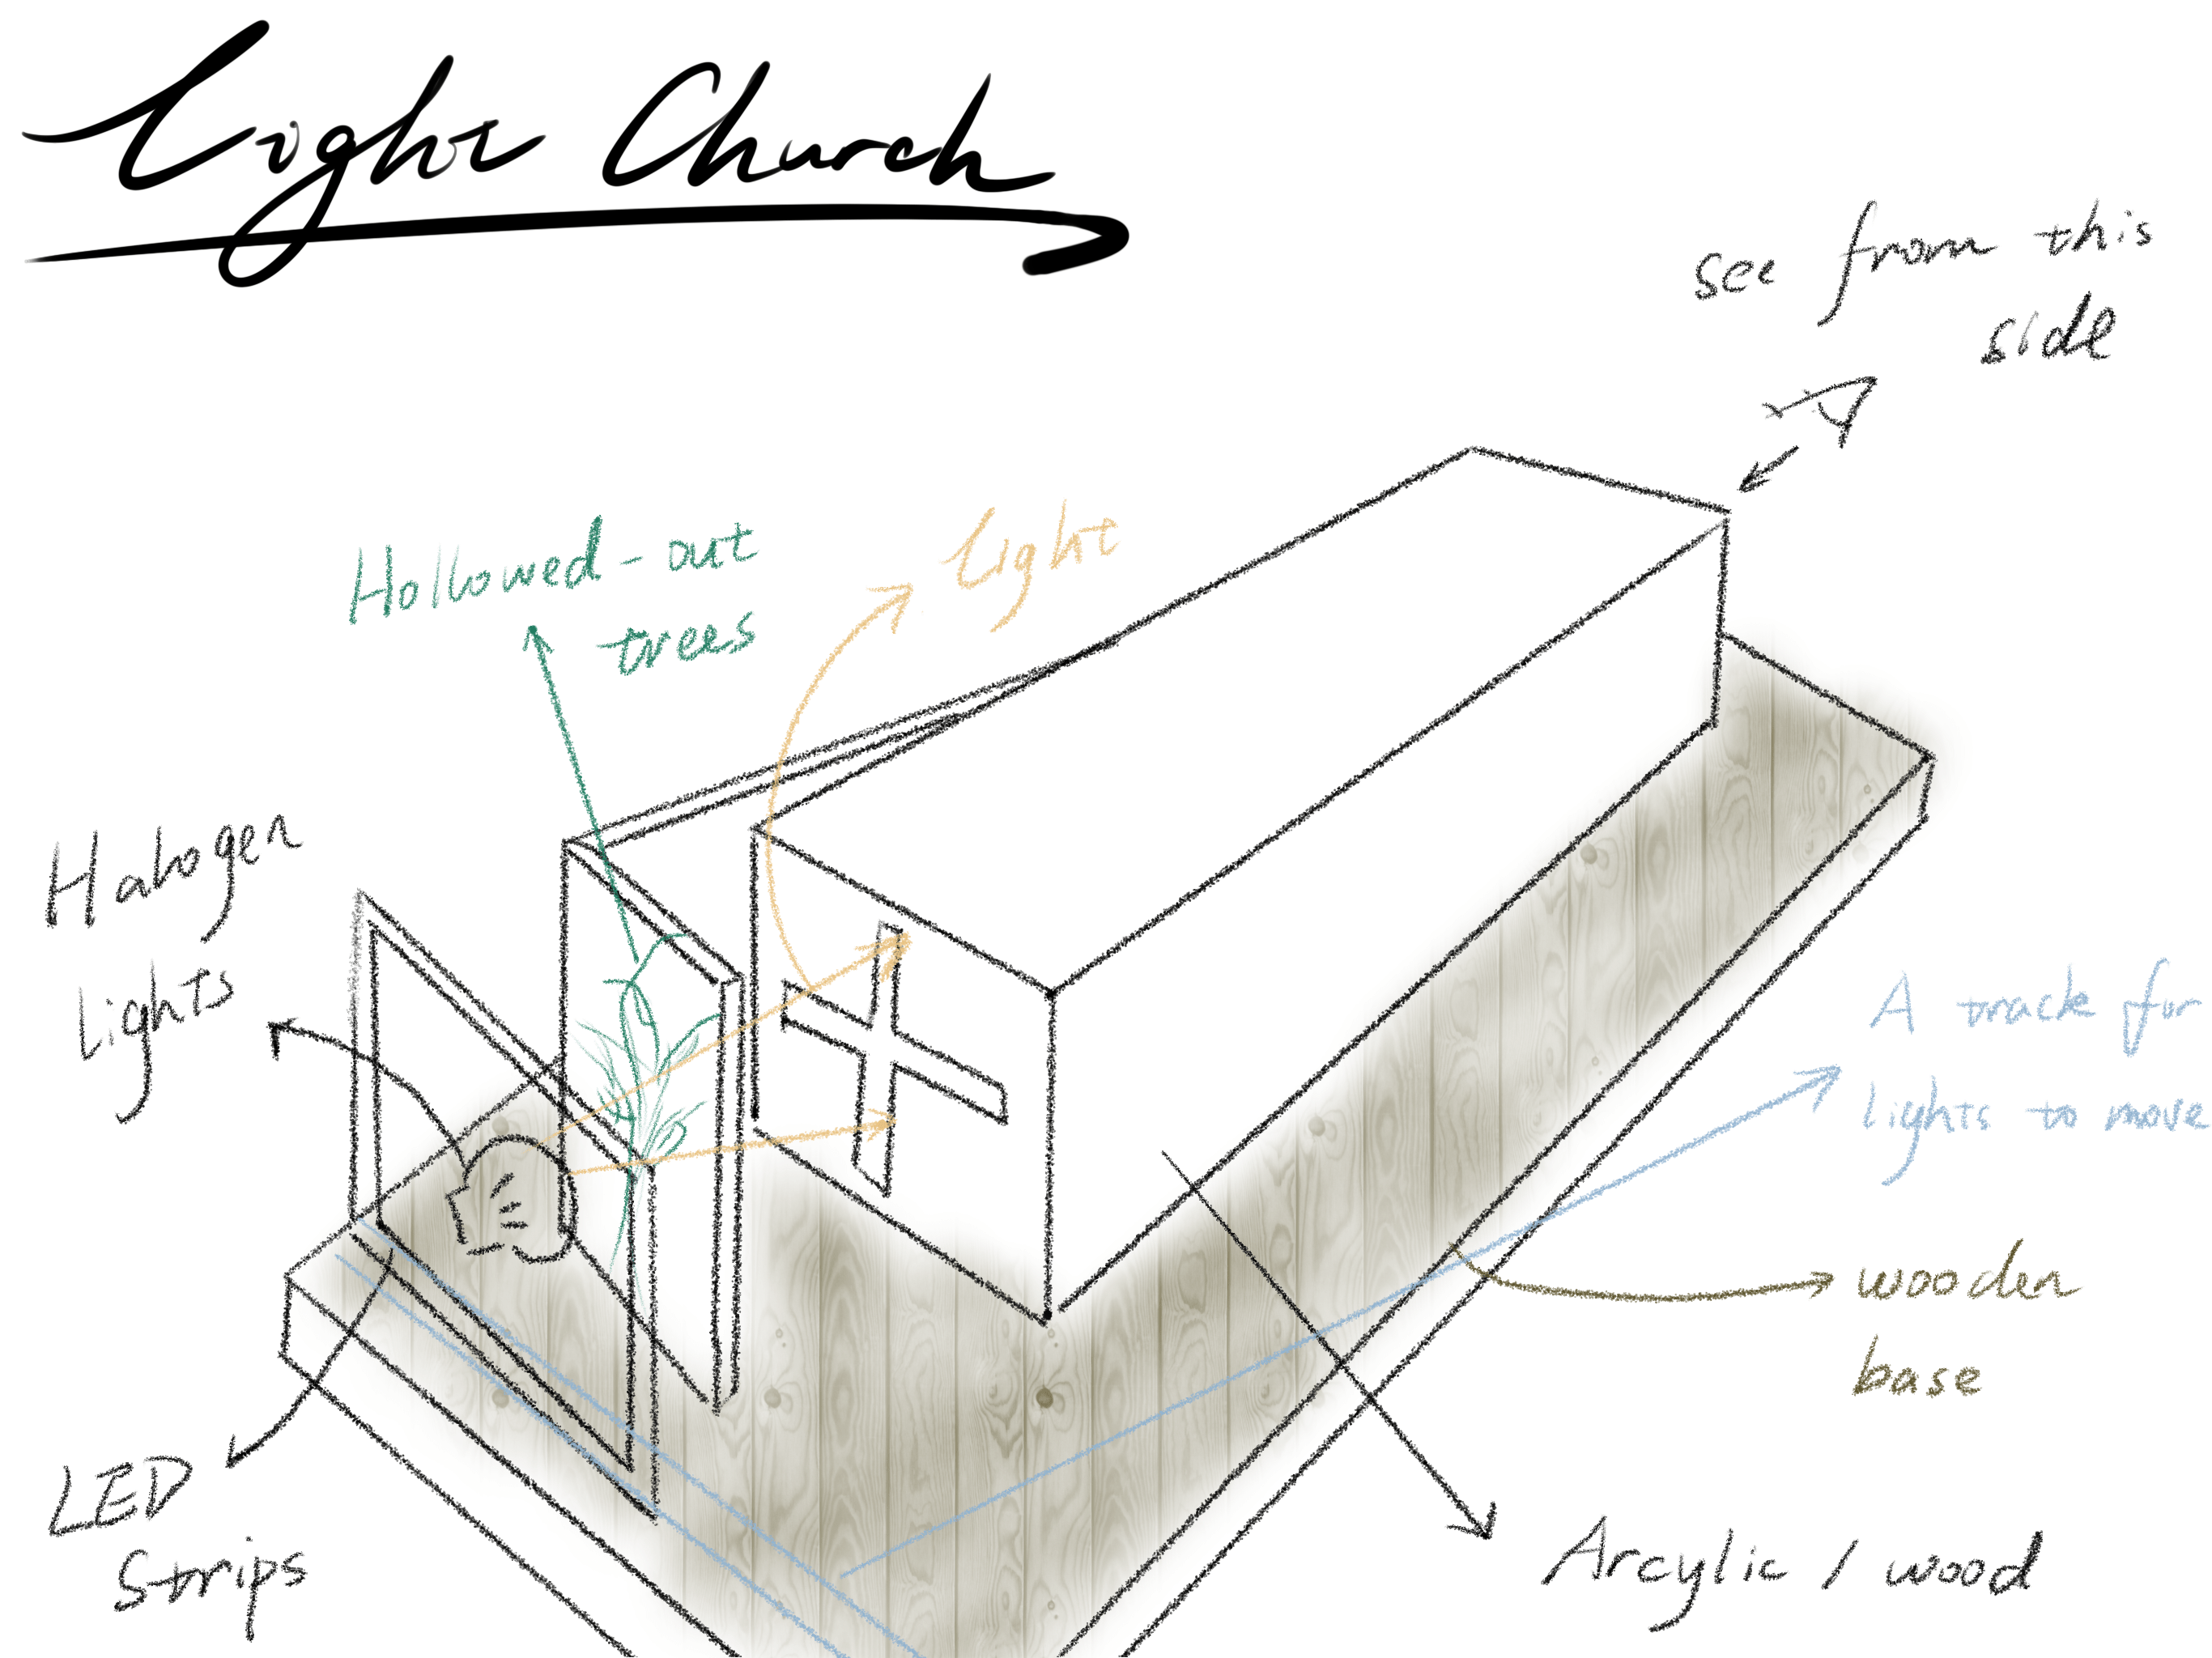 Light Church
see from this
side
Hollowed-out
trees
Light
Halogen
Lights
A track for
Lights to move
wooden
base
LED
Strips
Arcylic / wood